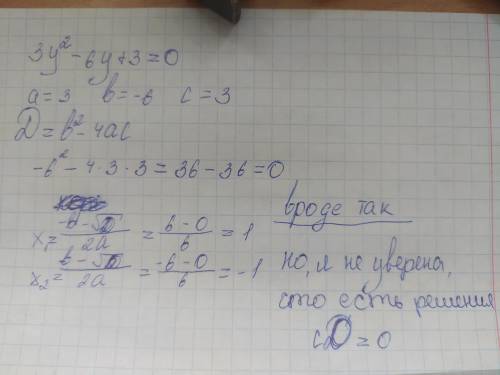 3y² - 6y + 3 = 0
a = 3   b = -6   c = 3
D = b² - 4ac
-6² - 4·3·3 = 36 - 36 = 0
x₁ = (-b - √D)/2a = (6 - 0)/6 = 1
x₂ = (b - √D)/2a = (-6 - 0)/6 = -1
вроде так
Но, я не уверена,
что есть решения
с D = 0